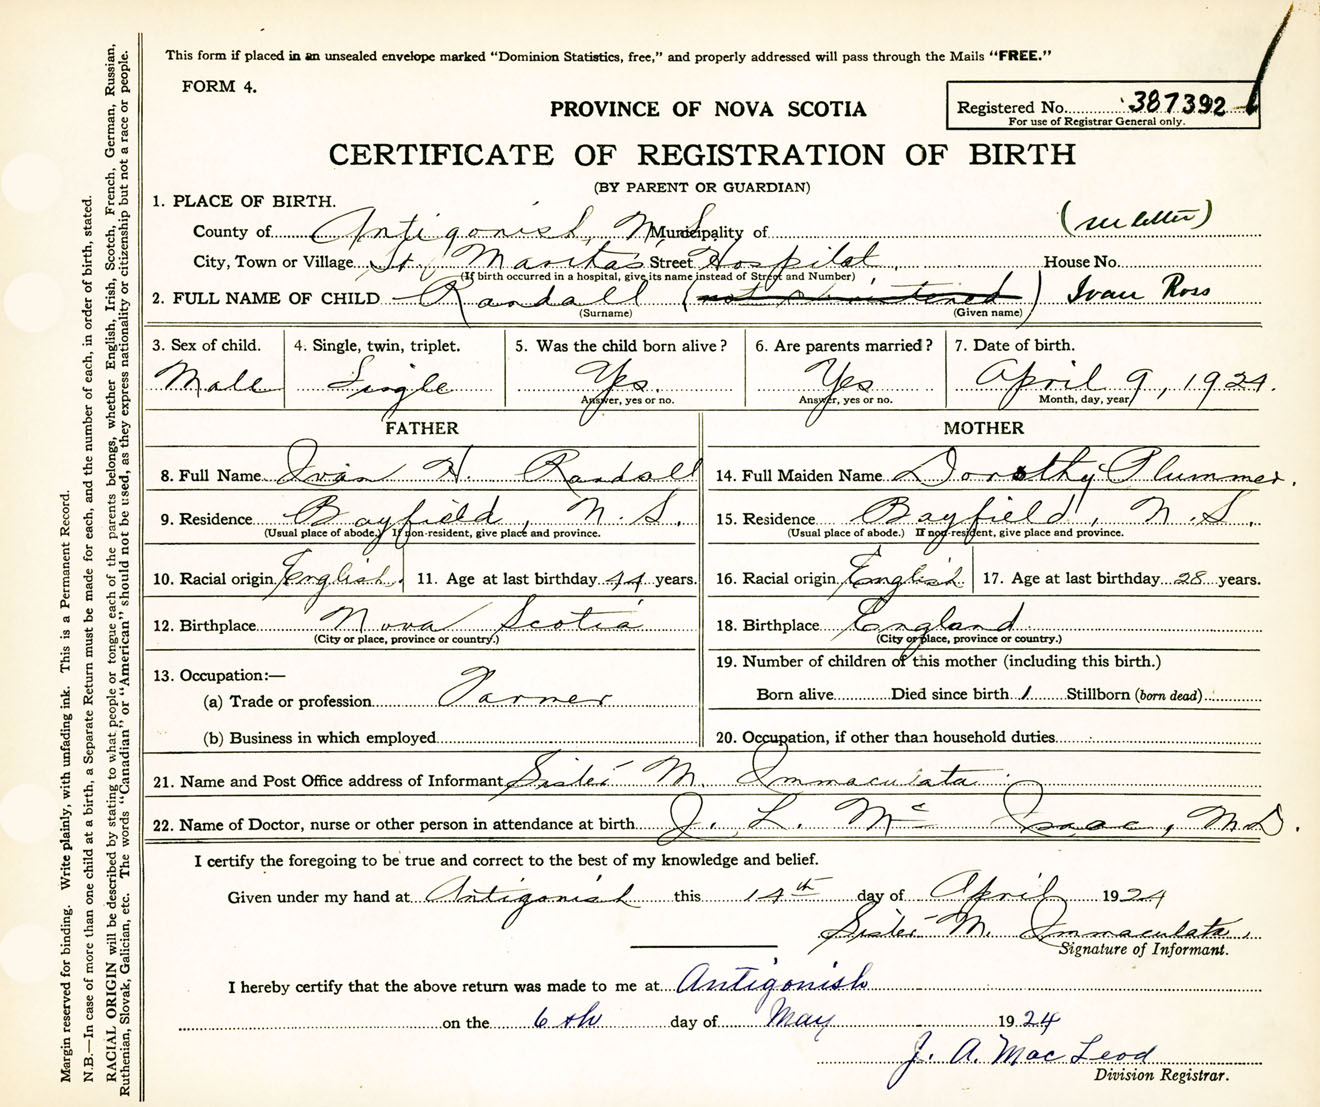 This form if placed in an unsealed envelope marked "Dominion Statistics, free," and properly addressed will pass through the Mails "FREE."
FORM 4.
Registered No. 387392
For use of Registrar General only.
PROVINCE OF NOVA SCOTIA
CERTIFICATE OF REGISTRATION OF BIRTH
(BY PARENT OR GUARDIAN)
1. PLACE OF BIRTH.
County of Antigonish, N.S. Municipality of (see letter)
City, Town or Village St. Martha's Street Hospital House No.
(If birth occurred in a hospital, give its name instead of Street and Number)
2. FULL NAME OF CHILD Randall (not christened) Ivan Ross
(Surname) (Given name)
3. Sex of child. 4. Single, twin, triplet. 5. Was the child born alive? 6. Are parents married? 7. Date of birth.
Male Single Yes. Yes April 9, 1924.
Answer, yes or no. Answer, yes or no. Month, day, year
FATHER MOTHER
8. Full Name Ivan H. Randall 14. Full Maiden Name Dorothy Plummer.
9. Residence Bayfield, N.S. 15. Residence Bayfield, N.S.
(Usual place of abode.) If non-resident, give place and province. (Usual place of abode.) If non-resident, give place and province.
10. Racial origin English. 11. Age at last birthday 44 years. 16. Racial origin English 17. Age at last birthday 28 years.
12. Birthplace Nova Scotia 18. Birthplace England
(City or place, province or country.) (City or place, province or country.)
13. Occupation:— 19. Number of children of this mother (including this birth.)
(a) Trade or profession Farmer Born alive Died since birth 1 Stillborn (born dead)
(b) Business in which employed 20. Occupation, if other than household duties
21. Name and Post Office address of Informant Sister M. Immaculata
22. Name of Doctor, nurse or other person in attendance at birth J. L. Mc Isaac, M.D.
I certify the foregoing to be true and correct to the best of my knowledge and belief.
Given under my hand at Antigonish this 14th day of April 1924
Sister M. Immaculata.
Signature of Informant.
I hereby certify that the above return was made to me at Antigonish
on the 6th day of May 1924
J. A. MacLeod
Division Registrar.
Margin reserved for binding. Write plainly, with unfading ink. This is a Permanent Record.
N.B.—In case of more than one child at a birth, a Separate Return must be made for each, and the number of each, in order of birth, stated.
RACIAL ORIGIN will be described by stating to what people or tongue each of the parents belongs, whether English, Irish, Scotch, French, German, Russian,
Ruthenian, Slovak, Galician, etc. The words "Canadian" or "American" should not be used, as they express nationality or citizenship but not a race or people.